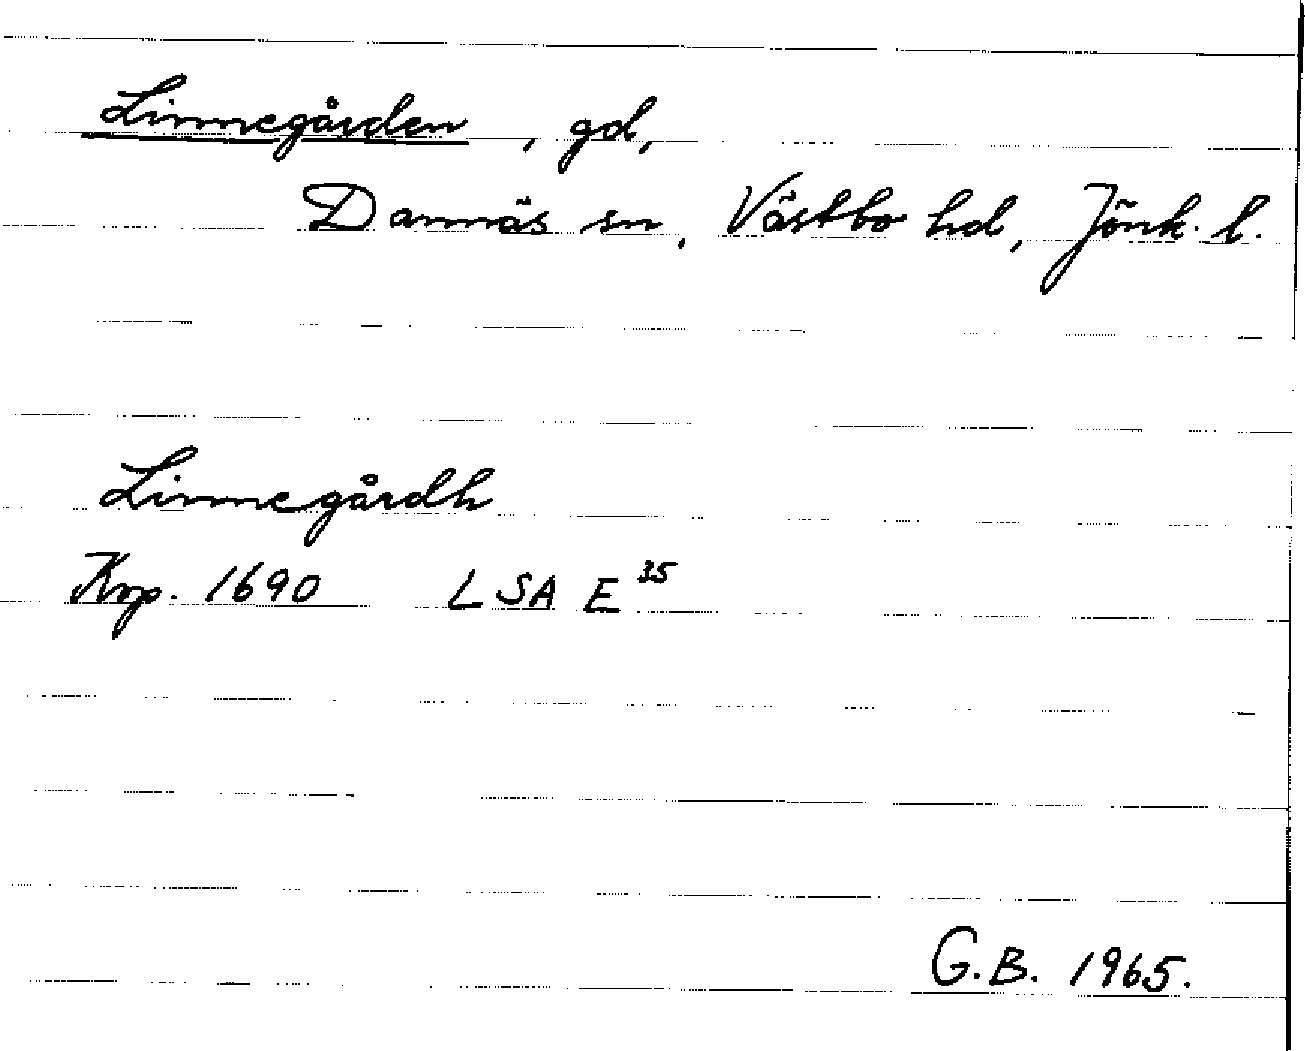 Linnegården, gd,
Dannäs sn, Västbo hd, Jönk. l.
Linnegårdh
Krp. 1690 LSA E 35
G.B. 1965.